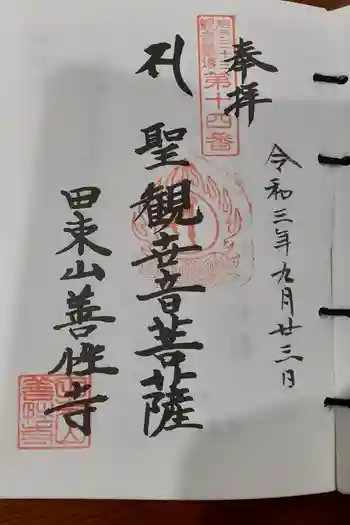 奉拝
第十四番
令和三年九月廿三日
聖観世音菩薩
田束山善性寺